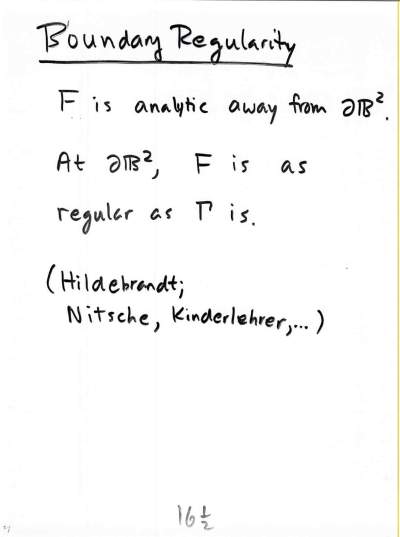 Boundary Regularity
F is analytic away from ∂𝔹².
At ∂𝔹², F is as
regular as Γ is.
(Hildebrandt;
Nitsche, Kinderlehrer,...)
16 ½